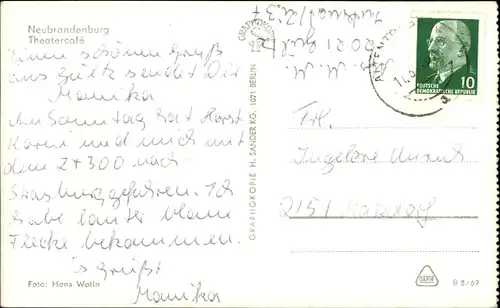 Neubrandenburg
Theatercafé
Einen schönen Gruß
aus Gültz sendet Dir
Monika
Am Sonntag hat Horst
Karin und mich mit
dem Z+300 nach
Strasburg gefahren. Ich
habe lauter blaue
Flecke bekommen.
Es grüßt
Monika
Foto: Hans Wotin
GRAPHOKOPIE H. SANDER KG, 1071 BERLIN
2021 Gültz
ALTENT
10
DEUTSCHE
DEMOKRATISCHE REPUBLIK
Frl.
Ingelore
2151
B 8/69